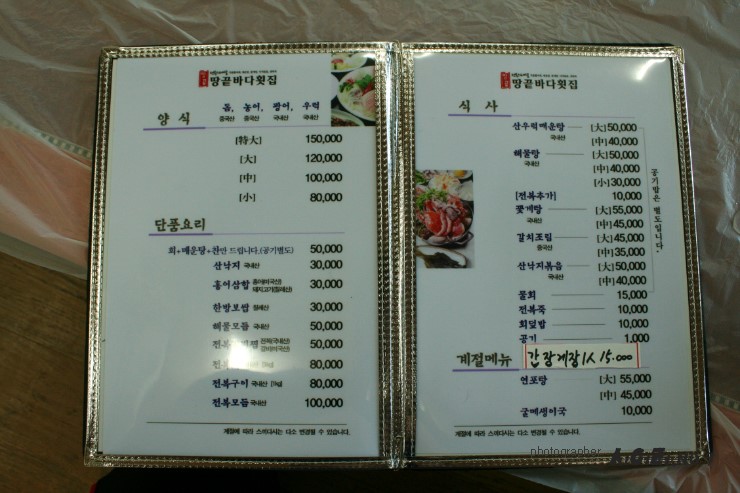 땅끝바다횟집
양 식
돔, 농어, 광어, 우럭
중국산 중국산 국내산 국내산
[特大] 150,000
[大] 120,000
[中] 100,000
[小] 80,000
단품요리
회+매운탕+찬만 드립니다.(공기별도) 50,000
산낙지 국내산 30,000
홍어삼합 30,000
한방보쌈 30,000
해물모듬 국내산 50,000
50,000
80,000
전복구이 국내산 80,000
전복모듬 국내산 100,000
계절에 따라 스끼다시는 다소 변경될 수 있습니다.
땅끝바다횟집
식 사
산우럭매운탕 [大] 50,000
국내산 [中] 40,000
해물탕 [大] 50,000
국내산 [中] 40,000
[小] 30,000
[전복추가] 10,000
꽃게탕 [大] 55,000
국내산 [中] 45,000
갈치조림 [大] 45,000
중국산 [中] 35,000
산낙지볶음 [大] 50,000
국내산 [中] 40,000
물회 15,000
전복죽 10,000
회덮밥 10,000
공기 1,000
공기밥은 별도입니다.
계절메뉴 간장게장1人 15.000
연포탕 [大] 55,000
[中] 45,000
굴매생이국 10,000
계절에 따라 스끼다시는 다소 변경될 수 있습니다.
photographer